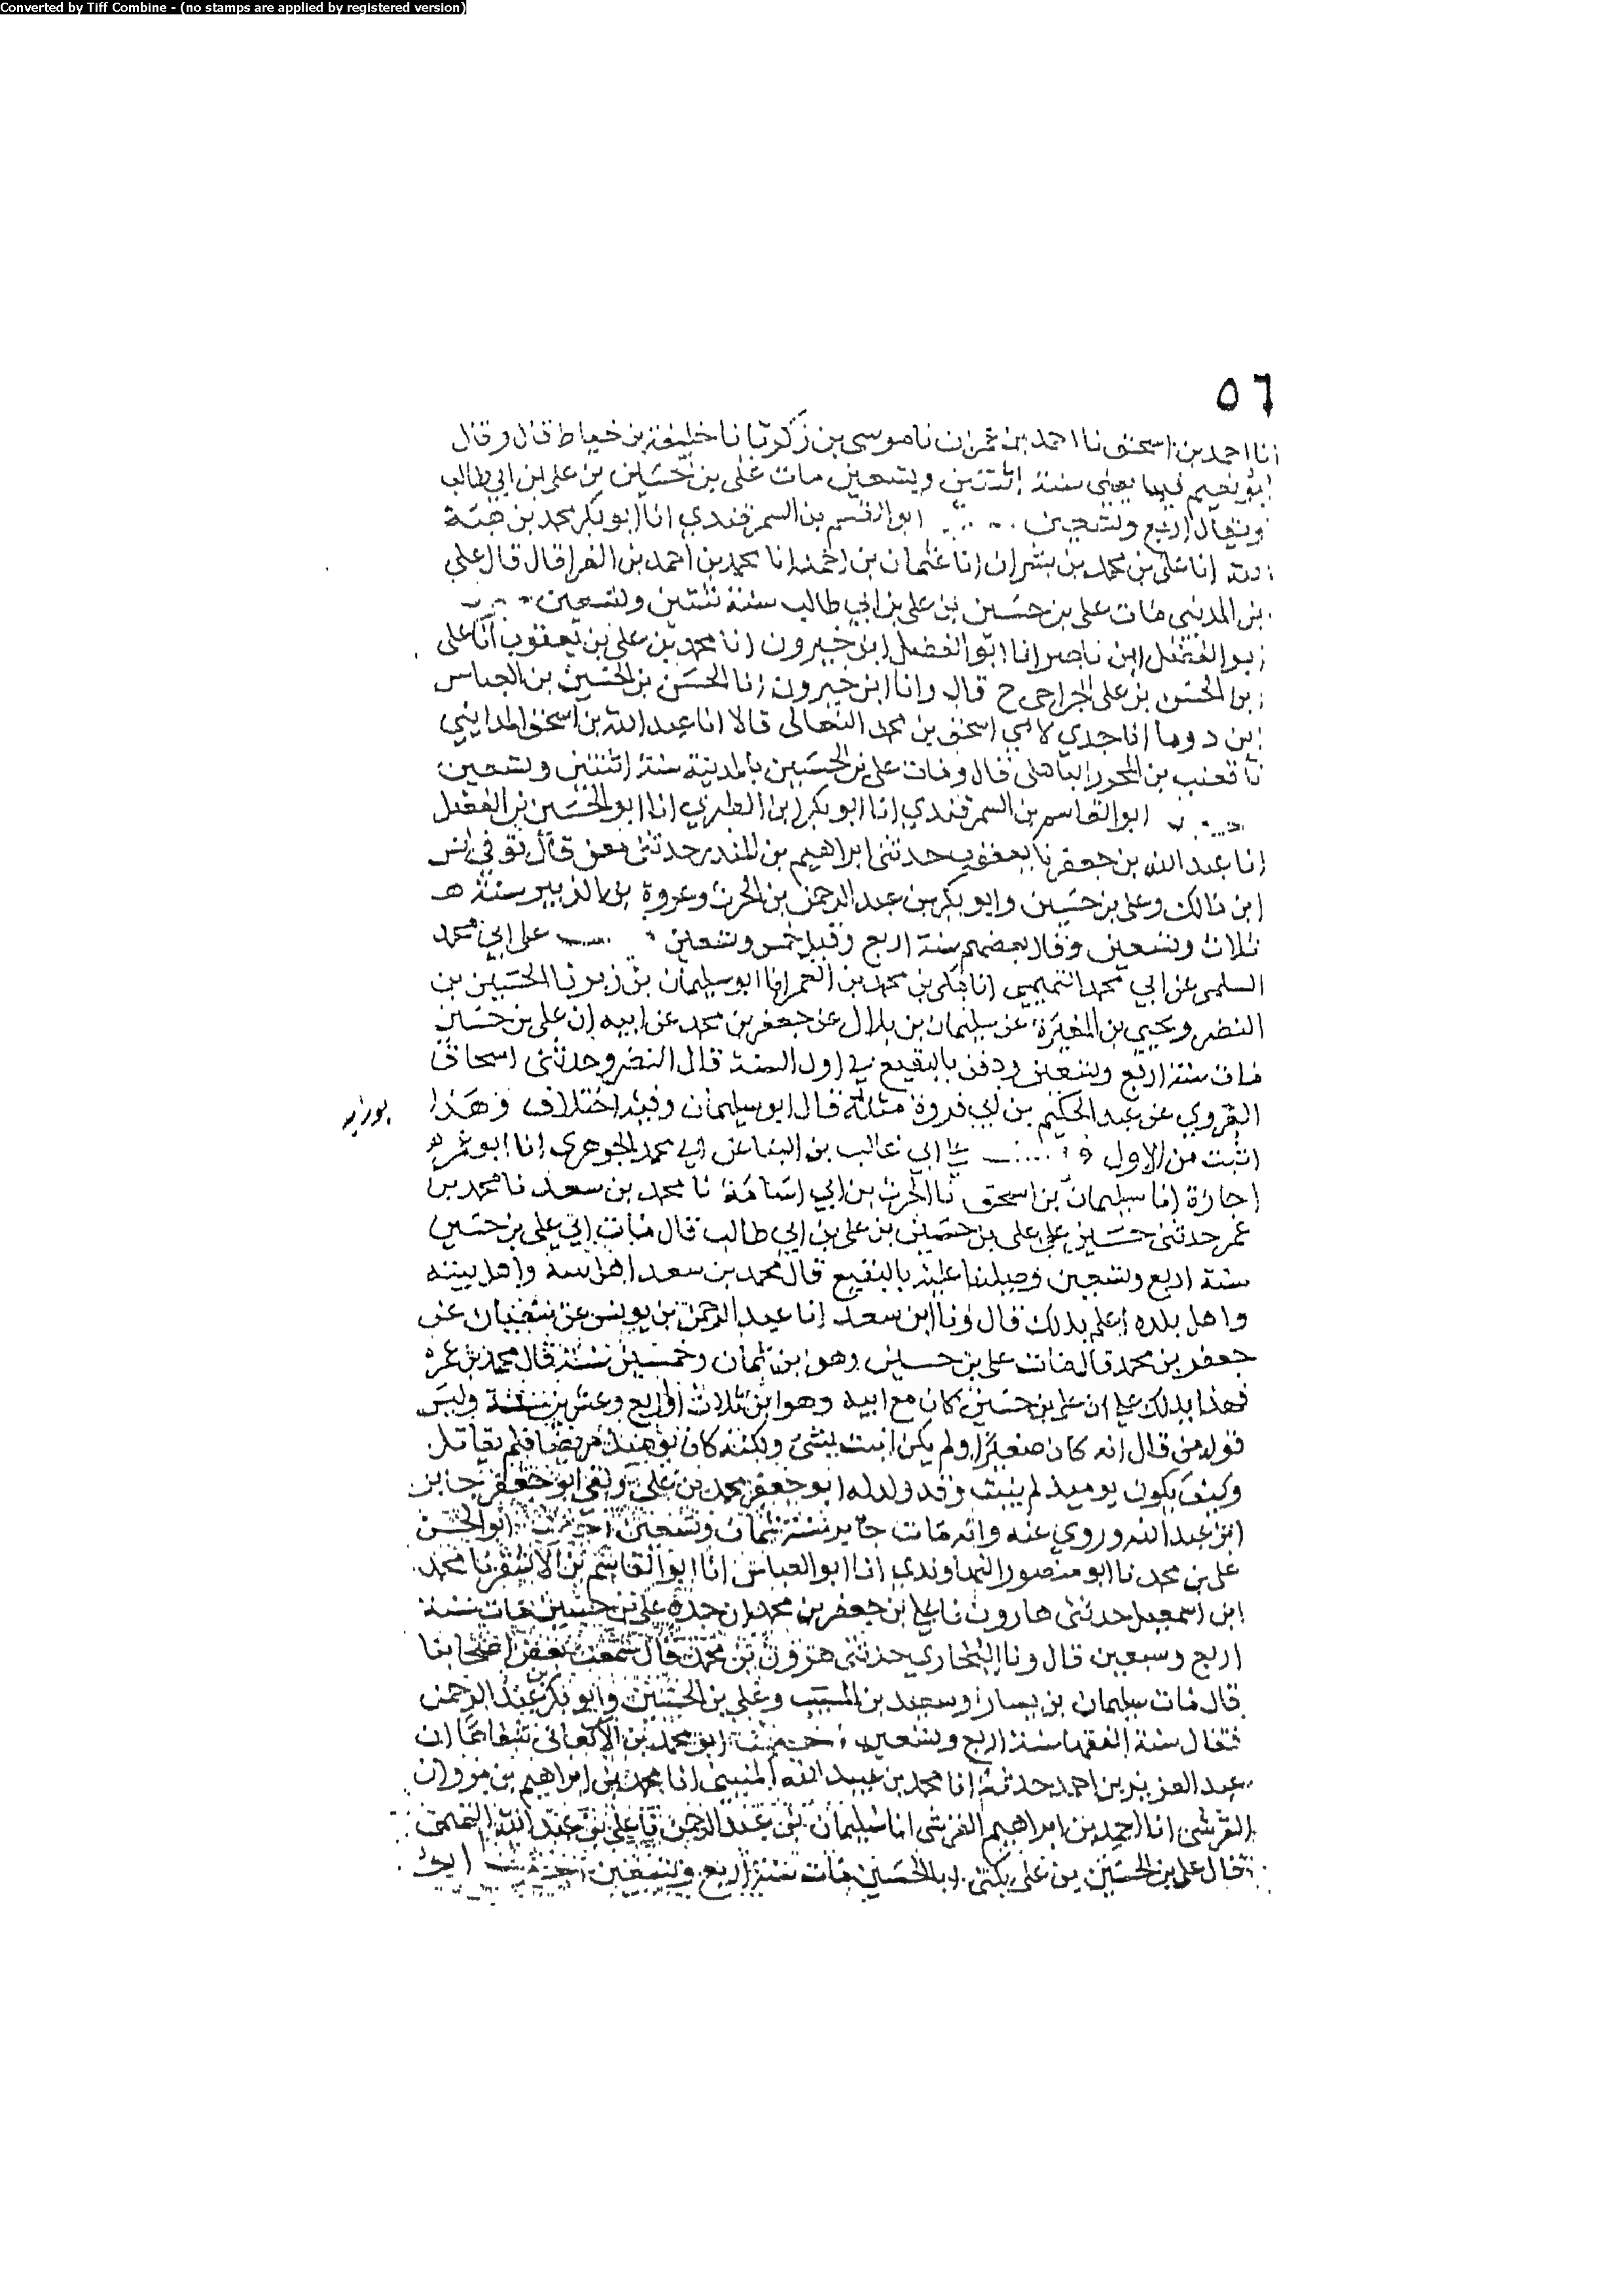 Converted by Tiff Combine - (no stamps are applied by registered version)
٥٦
انا احمد بن اسحق نا احمد بن عمران نا موسى بن زكريا نا خليفة بن خياط قال وقال
ابو نعيم فيها يعني سنة اثنتين وتسعين مات علي بن حسين بن علي بن ابي طالب
ويقال اربع وتسعين ابو القسم بن السمرقندي انا ابو بكر محمد بن هبة
انا علي بن محمد بن بشران انا عثمان بن احمد انا محمد بن احمد بن البرا قال قال علي
بن المديني مات علي بن حسين بن علي بن ابي طالب سنة ثنتين وتسعين
ابو الفضل ابن ناصر انا ابو الفضل ابن خيرون انا محمد بن علي بن يعقوب انا علي
بن الحسن بن علي الجراحي ح قال وانا ابن خيرون انا الحسن بن الحسين بن العباس
ابن دوما انا جدي لامي اسحق بن محمد النعالي قالا انا عبد الله بن اسحق المدايني
نا قعنب بن المحرر الباهلي قال ومات علي بن الحسين بالمدينة سنة اثنتين وتسعين
ابو القاسم بن السمرقندي انا ابو بكر ابن الطبري انا ابو الحسين بن الفضل
انا عبد الله بن جعفر نا يعقوب حدثني ابراهيم بن المنذر حدثني معن قال توفي انس
ابن مالك وعلي بن حسين وابو بكر بن عبد الرحمن بن الحرث وعروة بن الزبير سنة
ثلاث وتسعين وقال بعضهم سنة اربع وقيل خمس وتسعين على ابي محمد
السلمي عن ابي محمد التميمي انا مكي بن محمد بن الغمر انا ابو سليمان بن زبر نا الحسين بن
النضر ويحيي بن المغيرة عن سليمان بن بلال عن جعفر بن محمد عن ابيه ان علي بن حسين
مات سنة اربع وتسعين ودفن بالبقيع في اول السنة قال النضر وحدثني اسحاق
الفروي عن عبد الحكيم بن ابي فروة مثله قال ابو سليمان وفيه اختلاف وهذا
اثبت من الاول ابي غالب بن البنا عن ابي محمد الجوهري انا ابو عمر
اجازة انا سليمان بن اسحق نا الحرث بن ابي اسامة نا محمد بن سعد نا محمد بن
عمر حدثني حسين بن علي بن حسين بن علي بن ابي طالب قال مات ابي علي بن حسين
سنة اربع وتسعين وصلينا عليه بالبقيع قال محمد بن سعد اهل بيته
واهل بلده اعلم بذلك قال ونا ابن سعد انا عبد الرحمن بن يونس عن سفيان عن
جعفر بن محمد قال مات علي بن حسين وهو ابن ثمان وخمسين سنة قال محمد بن عمر
فهذا يدلك على ان علي بن حسين كان مع ابيه وهو ابن ثلاث او اربع وعشرين سنة وليس
قول من قال انه كان صغيرا ولم يكن انبت بشي ولكنه كان يوميذ مريضا فلم يقاتل
وكيف يكون يوميذ لم ينبت وقد ولد له ابو جعفر محمد بن علي ولقي ابو جعفر جابر
ابن عبد الله وروي عنه وانه مات جابر سنة ثمان وسبعين ابو الحسن
علي بن محمد نا ابو منصور النهاوندي انا ابو العباس انا ابو القاسم بن الاشقر نا محمد
ابن اسمعيل حدثني هارون نا علي بن جعفر بن محمد ان جده علي بن حسين مات سنة
اربع وسبعين قال ونا البخاري حدثني هرون بن محمد قال سمعت بعض اصحابنا
قال مات سليمان بن يسار وسعيد بن المسيب وعلي بن الحسين وابو بكر بن عبد الرحمن
يقال سنة الفقها سنة اربع وتسعين ابو محمد بن الاكفاني شفاها ان
عبد العزيز بن احمد حدثه انا محمد بن عبيد الله المنيني انا محمد بن ابراهيم بن مروان
القرشي انا احمد بن ابراهيم القرشي انا سليمان بن عبد الرحمن نا علي بن عبد الله التميمي
قال علي بن الحسين بن علي يكنى ابا الحسين مات سنة اربع وتسعين